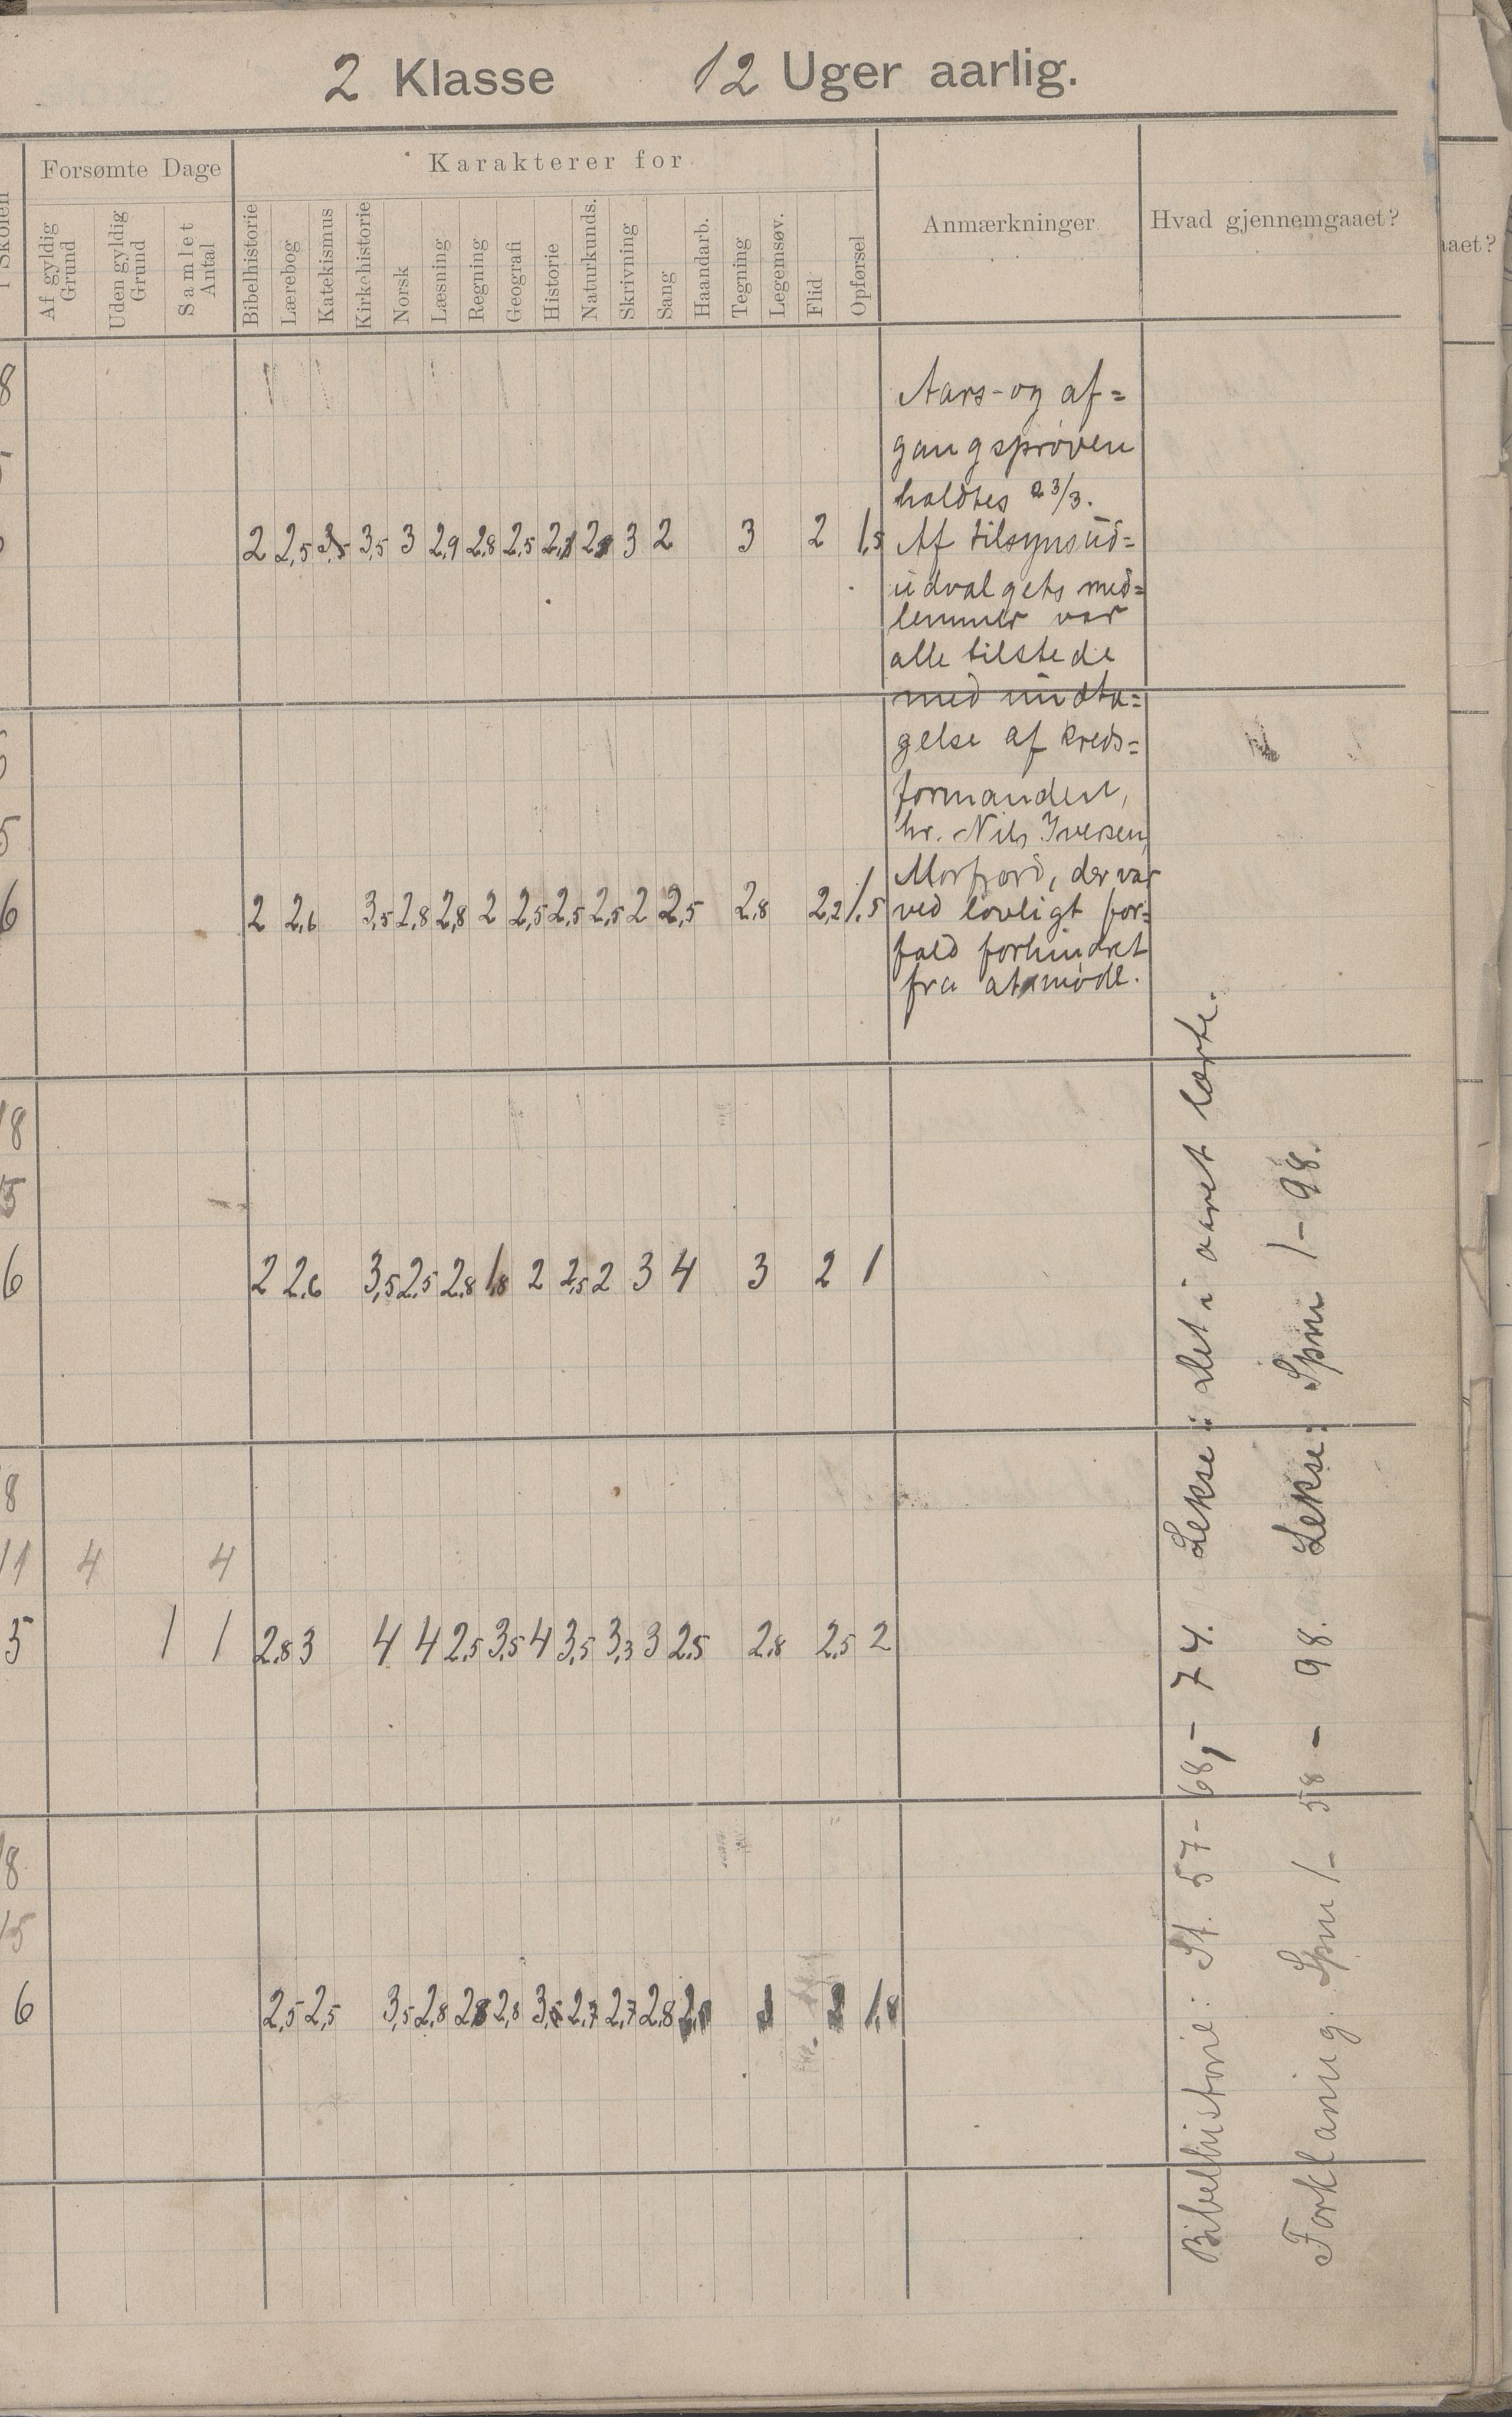 2 Klasse 12 Uger aarlig.
i Skolen
Forsømte Dage
Karakterer for
Anmærkninger
Hvad gjennemgaaet?
aaet?
Af gyldig Grund
Uden gyldig Grund
Samlet Antal
Bibelhistorie
Lærebog
Katekismus
Kirkehistorie
Norsk
Læsning
Regning
Geografi
Historie
Naturkunds.
Skrivning
Sang
Haandarb.
Tegning
Legemsøv.
Flid
Opførsel
8
2 2,5 3,5 3,5 3 2,9 2,8 2,5 3 2 3 2 1,5
Aars- og af=
gangsprøven
holdtes 23/3.
Af tilsynsud=
udvalgets med=
lemmer var
alle tilstede
med undta=
gelse af kreds=
formanden,
hr. Nils Iversen,
Morfjord, der var
ved lovligt for=
fald forhindret
fra at møde.
5
6 2 2,6 3,5 2,8 2,8 2 2,5 2,5 2,5 2 2,5 2,8 2,2 1,5
18
15
6 2 2,6 3,5 2,5 2,8 1,8 2 2,5 2 3 4 3 2 1
8
11 4 4
5 1 1 2,8 3 4 4 2,5 3,5 4 3,5 3,3 3 2,5 2,8 2,5 2
18
15
6 2,5 2,5 3,5 2,8 2,8 2,8 3,5 2,7 2,7 2,8 2 1,8
Bibelhistorie: St. 57 - 68, - 74. Lekse: Det i aaret lærte.
Forklaring. Spm 1 - 58 - 98. Lekse: Spm 1 - 98.